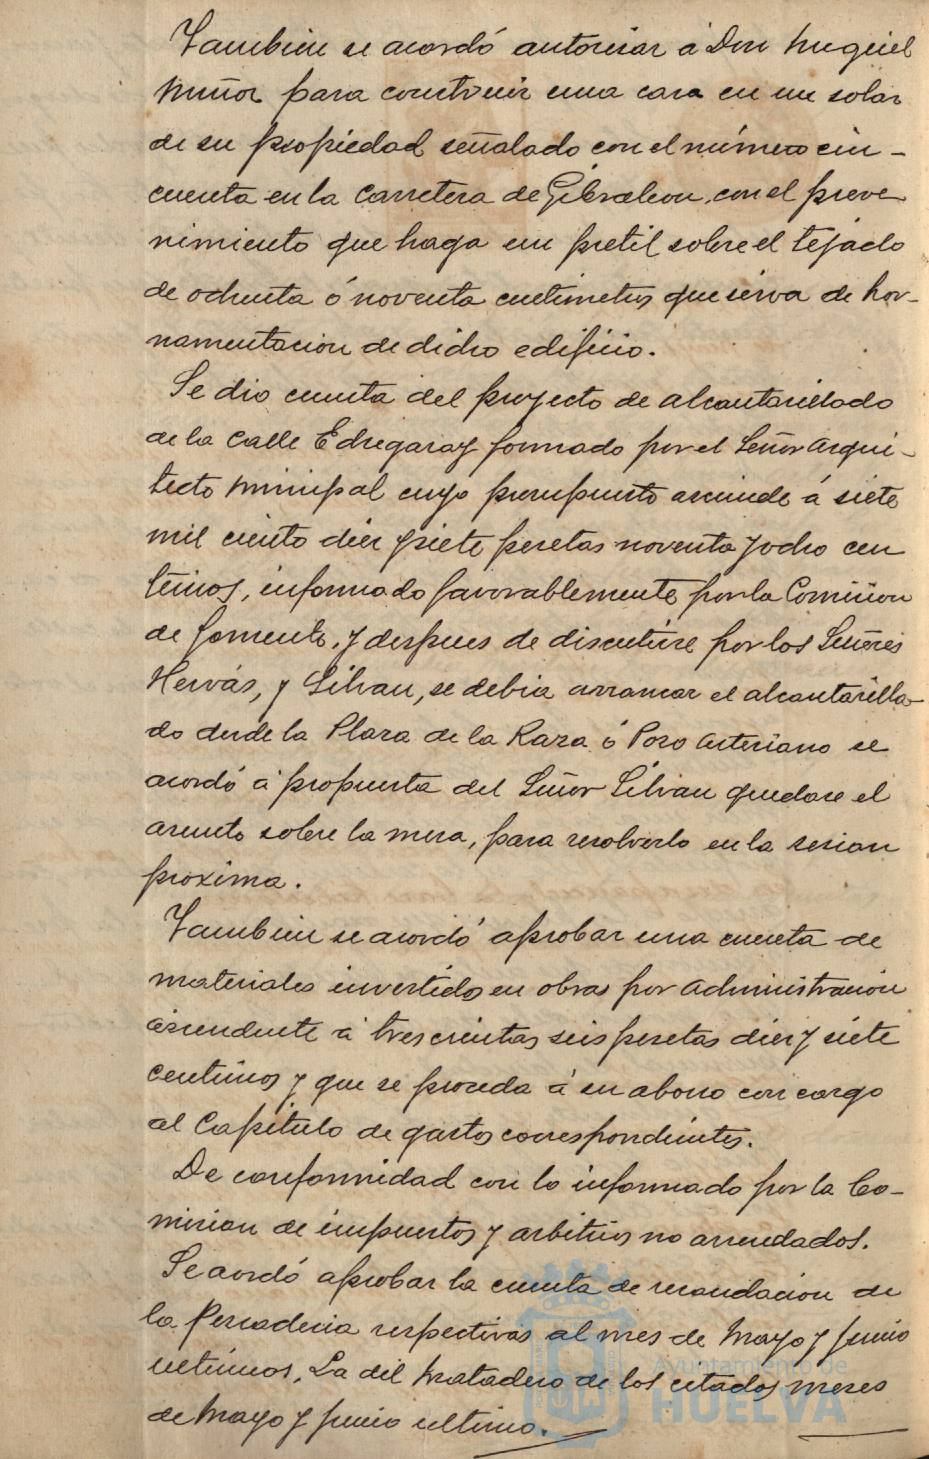 Tambien se acordó autorizar á Don Miguel
Muñoz para construir una casa en un solar
de su propiedad señalado con el número cin-
cuenta en la Carretera de Gibraleon, con el preve
nimiento que haga un pretil sobre el tejado
de ochenta ó noventa centimetros que sirva de hor-
namentacion de dicho edificio.
Se dio cuenta del proyecto de alcantarillado
de la Calle Echegaray formado por el Señor Arqui-
tecto Municipal cuyo presupuesto asciende á siete
mil ciento diez y siete pesetas noventa y ocho cen
timos, informado favorablemente por la Comision
de fomento, y despues de discutirse por los Señores
Hervás, y Silvan, se debia arrancar el alcantarilla-
do desde la Plaza de la Raza ó Pozo Artesiano se
acordó á propuesta del Señor Silvan quedase el
asunto sobre la mesa, para resolverlo en la sesion
proxima.
Tambien se acordó aprobar una cuenta de
materiales invertidos en obras por Administracion
ascendente á trescientas seis pesetas diez y siete
centimos y que se proceda á su abono con cargo
al Capitulo de gastos correspondientes.
De conformidad con lo informado por la Co-
mision de impuestos y arbitrios no arrendados.
Se acordó aprobar la cuenta de recaudacion de
la Pescaderia respectivas al mes de Mayo y Junio
ultimos. La del Matadero de los citados meses
de Mayo y Junio ultimo.
Ayuntamiento de
HUELVA